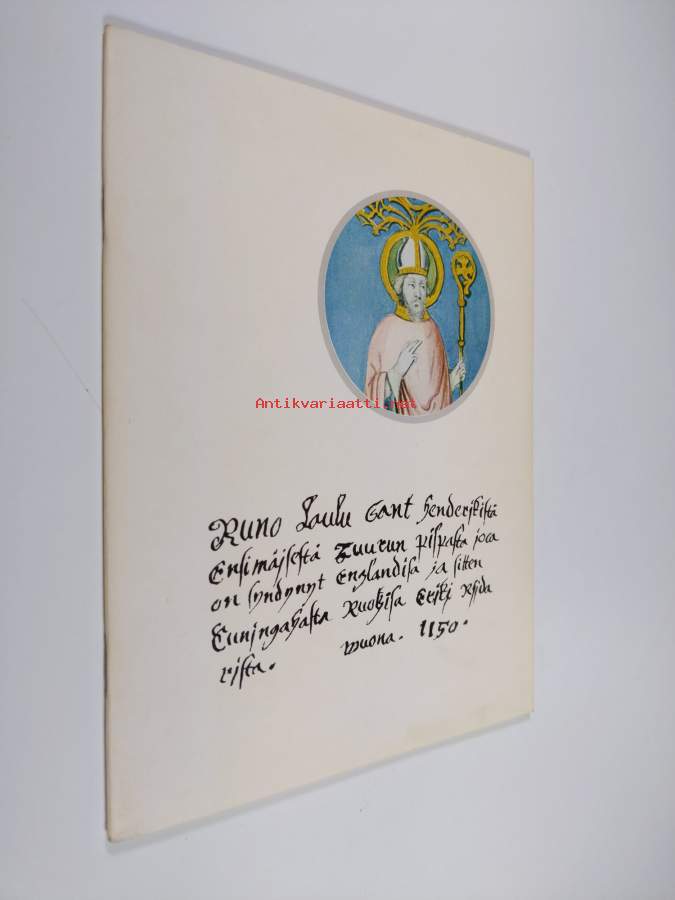 Antikvariaatti.net
Runo Laulu Sant Henderikistä
Ensimäjsestä Tuurun Pispasta joca
on syndynyt Englandisa ja sitten
Cuningahasta Ruotzisa Eriki
rista. wuona. 1150.